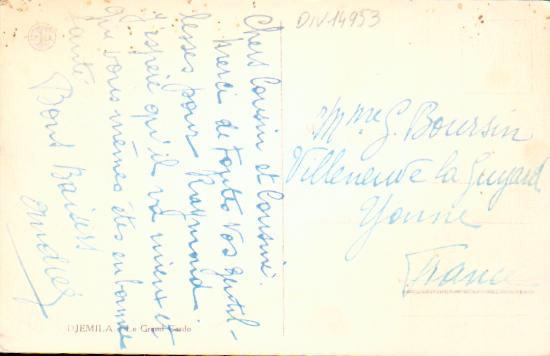 DIV 14953
Chers Cousin et Cousine
merci de toutes vos gentil-
lesses pour Raymond.
J'espère qu'il va mieux et
que vous mêmes êtes en bonne
santé
Bons Baisers
Andrée
Mme G. Boursin
Villeneuve la Guyard
Yonne
France
DJEMILA - Le Grand Cardo